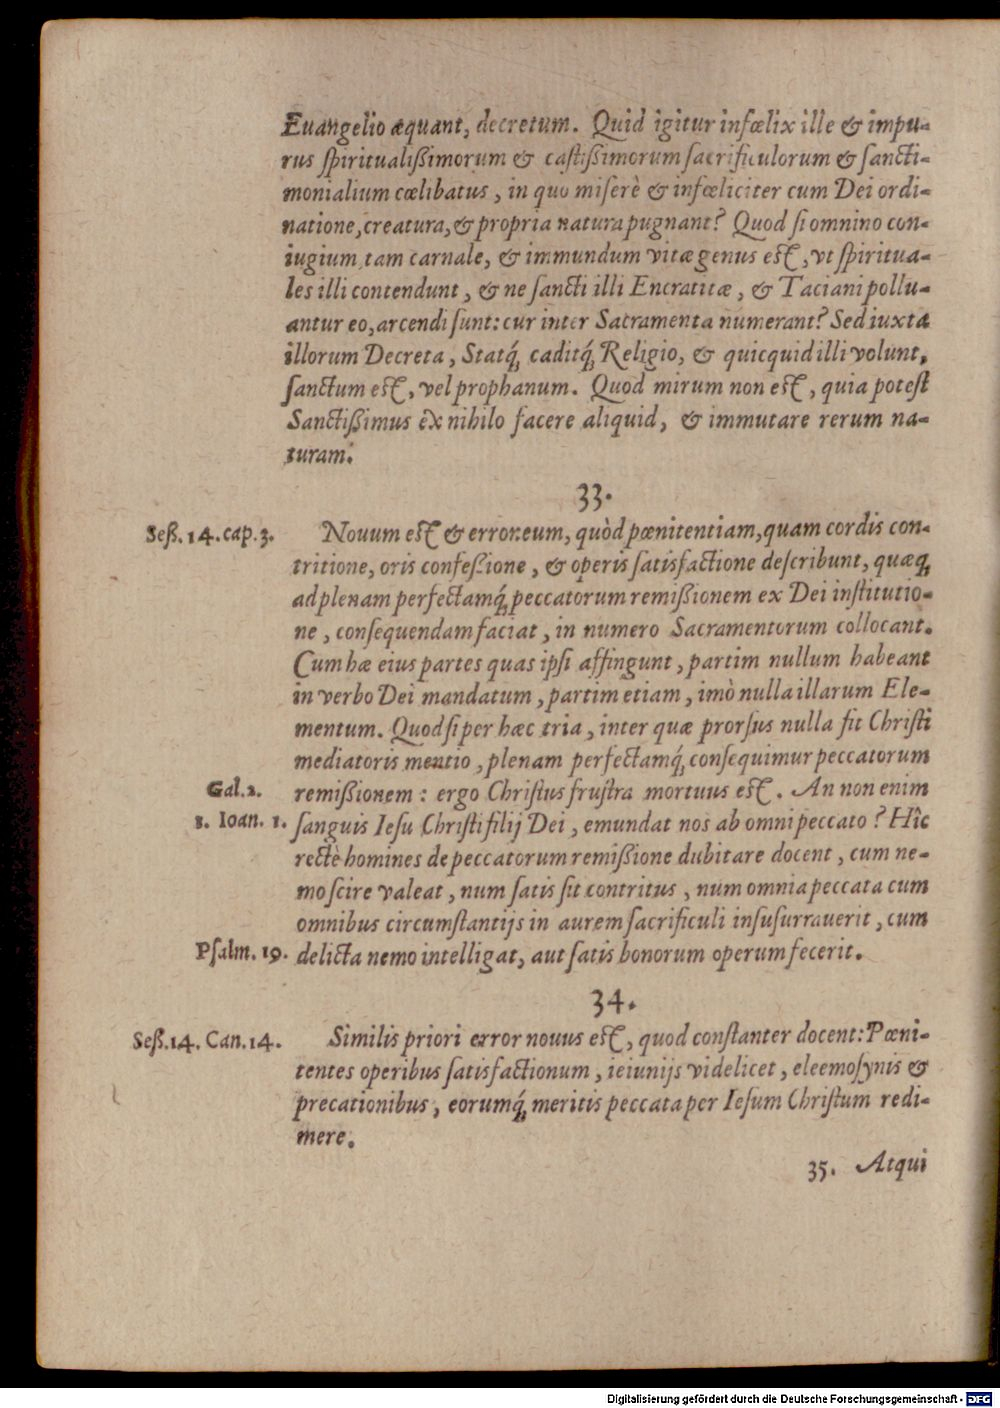 Euangelio æquant, decretum. Quid igitur infœlix ille & impu-
rus ſpiritualißimorum & caſtißimorum ſacrificulorum & ſancti-
monialium cœlibatus, in quo miſerè & infœliciter cum Dei ordi-
natione, creatura, & propria natura pugnant? Quod ſi omnino con-
iugium tam carnale, & immundum vitæ genus eſt, vt ſpiritua-
les illi contendunt, & ne ſancti illi Encratitæ, & Taciani pollu-
antur eo, arcendi ſunt: cur inter Sacramenta numerant? Sed iuxta
illorum Decreta, Statq́; caditq́; Religio, & quicquid illi volunt,
ſanctum eſt, vel prophanum. Quod mirum non eſt, quia poteſt
Sanctißimus ex nihilo facere aliquid, & immutare rerum na-
turam.
33.
Seß. 14. cap. 3. Nouum eſt & erroneum, quòd pœnitentiam, quam cordis con-
tritione, oris confeßione, & operis ſatisfactione deſcribunt, quæq;
ad plenam perfectamq́; peccatorum remißionem ex Dei inſtitutio-
ne, conſequendam faciat, in numero Sacramentorum collocant.
Cum hæ eius partes quas ipſi affingunt, partim nullum habeant
in verbo Dei mandatum, partim etiam, imò nulla illarum Ele-
mentum. Quod ſi per hæc tria, inter quæ prorſus nulla fit Chriſti
mediatoris mentio, plenam perfectamq́; conſequimur peccatorum
Gal. 2. remißionem: ergo Chriſtus fruſtra mortuus eſt. An non enim
1. Ioan. 1. ſanguis Ieſu Chriſti filij Dei, emundat nos ab omni peccato? Hîc
rectè homines de peccatorum remißione dubitare docent, cum ne-
mo ſcire valeat, num ſatis ſit contritus, num omnia peccata cum
omnibus circumſtantijs in aurem ſacrificuli inſuſurrauerit, cum
Pſalm. 19. delicta nemo intelligat, aut ſatis bonorum operum fecerit.
34.
Seß. 14. Can. 14. Similis priori error nouus eſt, quod conſtanter docent: Pœni-
tentes operibus ſatisfactionum, ieiunijs videlicet, eleemoſynis &
precationibus, eorumq́; meritis peccata per Ieſum Chriſtum redi-
mere.
35. Atqui
Digitalisierung gefördert durch die Deutsche Forschungsgemeinschaft - DFG